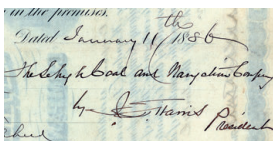 in the premises.
Dated January 11th 1886
The Schuylk Coal and Navigation Company
by J. E. Harris President